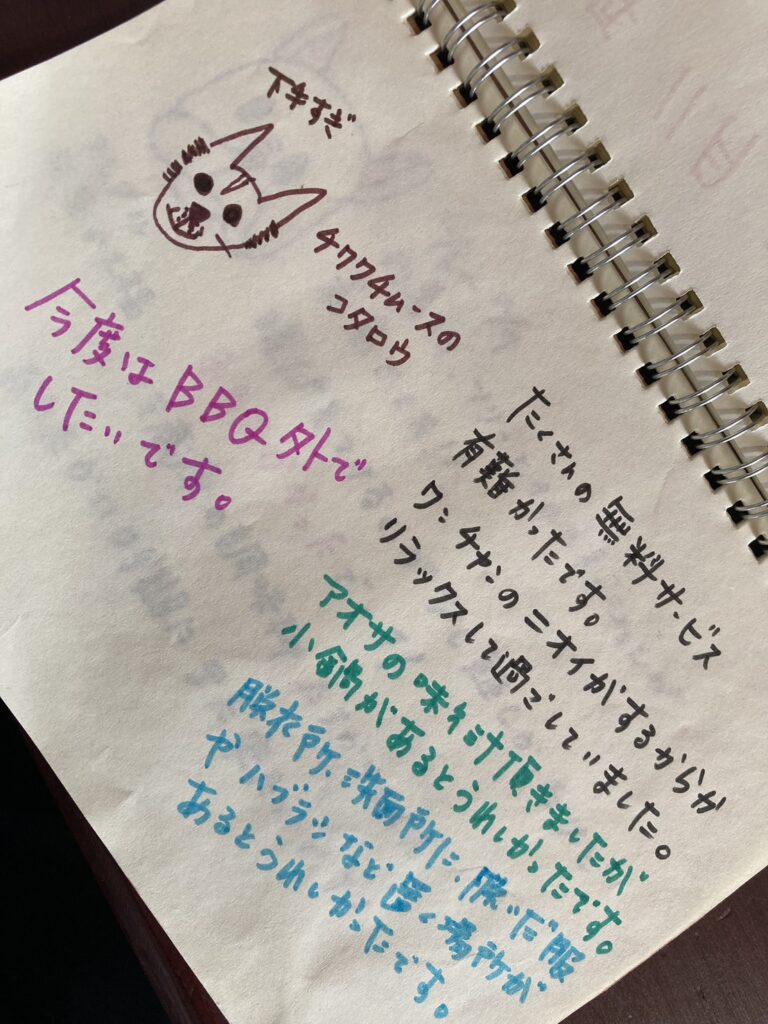 下手すぎ
チワワチュースの
コタロウ
今度はBBQ外で
したいです。
たくさんの無料サービス
有難かったです。
ワンチャンのニオイがするからか
リラックスして過ごしていました。
アオサの味そ汁頂きましたが
小鍋があるとうれしかったです。
脱衣所、洗面所に、脱いだ服
やハブラシなど置く場所が
あるとうれしかったです。